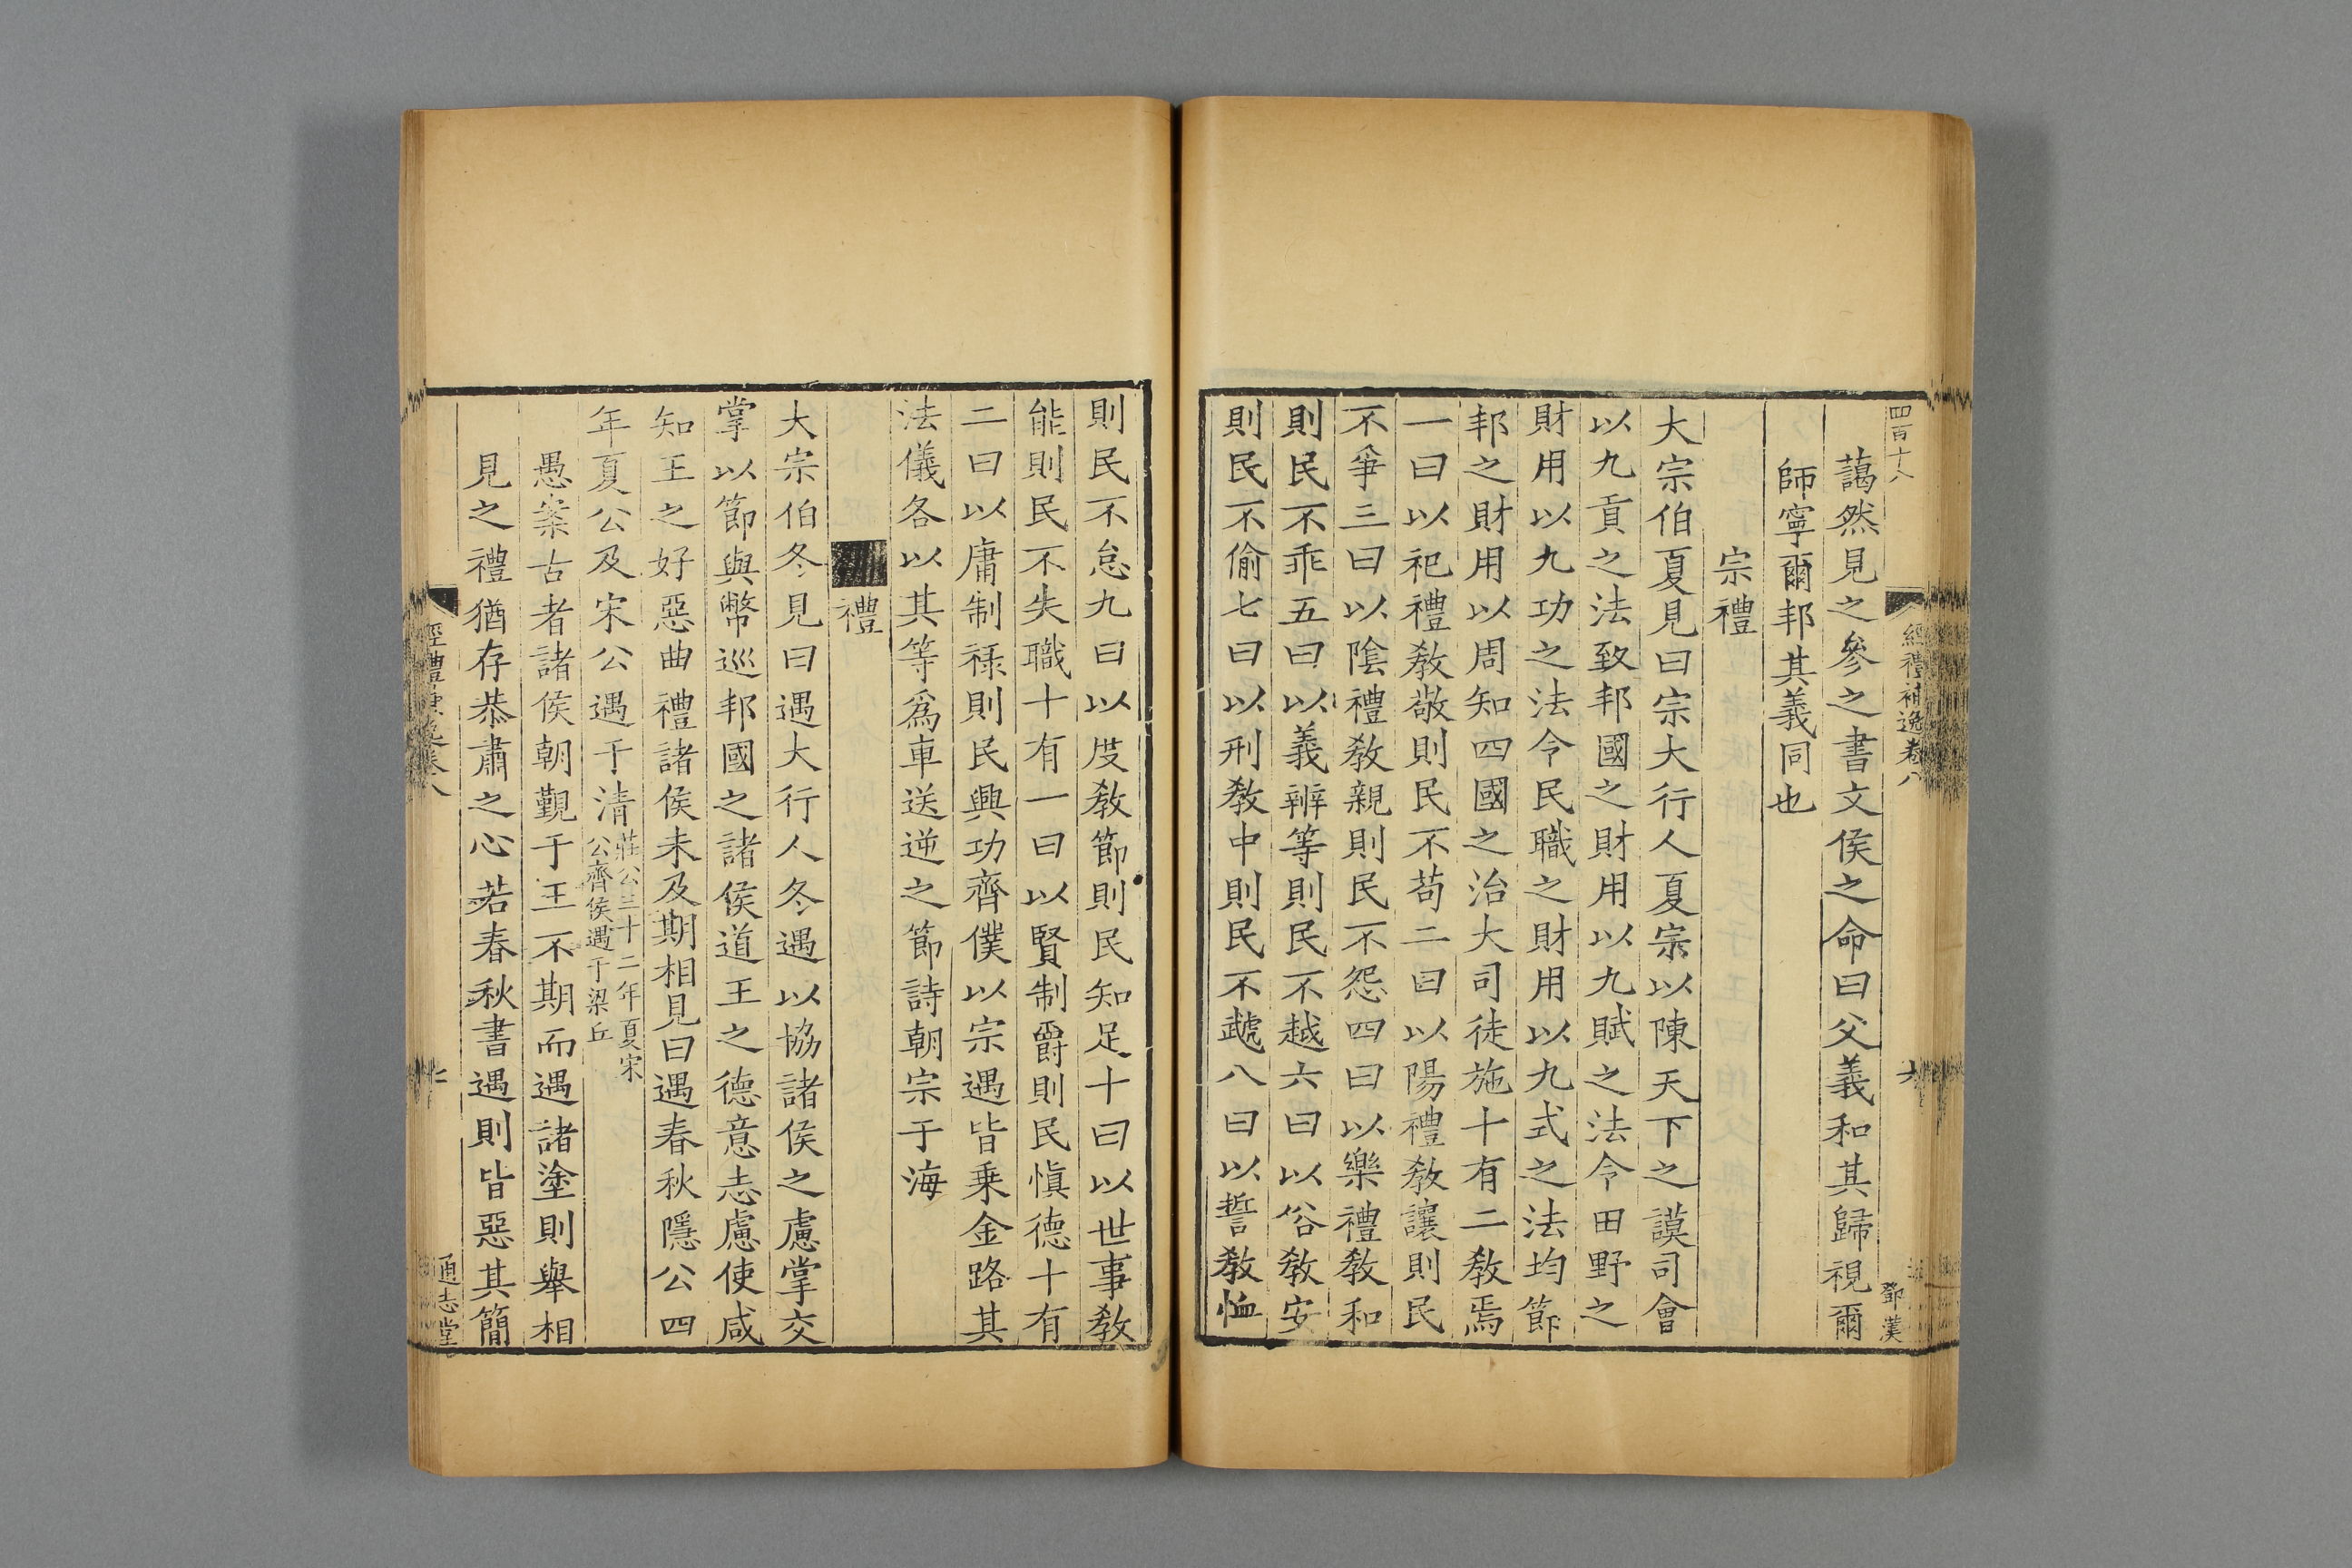 四百十八
經禮補逸卷八
鄧漢
藹然見之參之書文侯之命曰父義和其歸視爾
師寧爾邦其義同也
宗禮
大宗伯夏見曰宗大行人夏宗以陳天下之謨司會
以九貢之法致邦國之財用以九賦之法令田野之
財用以九功之法令民職之財用以九式之法均節
邦之財用以周知四國之治大司徒施十有二敎焉
一曰以祀禮敎敬則民不苟二曰以陽禮敎讓則民
不爭三曰以陰禮敎親則民不怨四曰以樂禮敎和
則民不乖五曰以義辨等則民不越六曰以俗敎安
則民不偷七曰以刑敎中則民不虣八曰以誓敎恤
則民不怠九曰以度敎節則民知足十曰以世事敎
能則民不失職十有一曰以賢制爵則民愼德十有
二曰以庸制祿則民興功齊僕以宗遇皆乗金路其
法儀各以其等爲車送逆之節詩朝宗于海
禮
大宗伯冬見曰遇大行人冬遇以協諸侯之慮掌交
掌以節與幣巡邦國之諸侯道王之德意志慮使咸
知王之好惡曲禮諸侯未及期相見曰遇春秋隱公四
年夏公及宋公遇于清莊公三十二年夏宋公齊侯遇于梁丘
愚案古者諸侯朝覲于王不期而遇諸塗則舉相
見之禮猶存恭肅之心若春秋書遇則皆惡其簡
通志堂